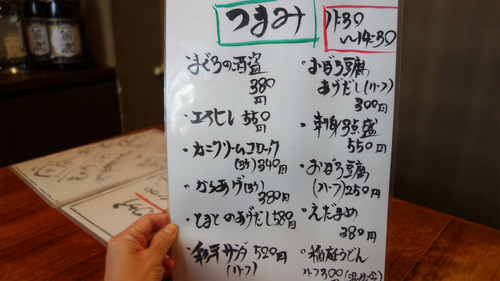 つまみ
11:30
〜14:30
まぐろの酒盗
380
円
エイヒレ 550
円
カニクリームコロッケ
(3ヶ) 340円
からあげ(3ヶ)
380円
とまとのあげだし 580円
サラダ 520円
(ハーフ)
・おぼろ豆腐
あげだし(ハーフ)
300円
・刺身3点盛
550円
・おぼろ豆腐
(ハーフ) 250円
・えだまめ
380円
・稲庭うどん
ハーフ300円